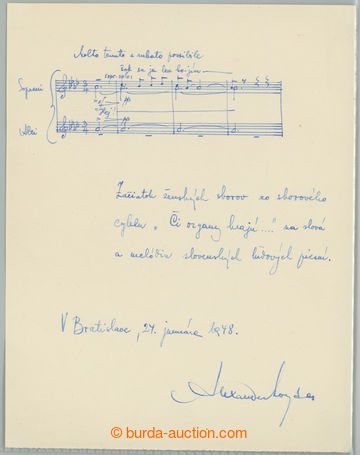 Molto tenuto e rubato possibile
žak sa ja len bojím
sopr. solo
Soprani
pp
pp
Alti
Začiatok ženských sborov zo sborového
cyklu „Či organy hrajú...." na slová
a melódiu slovenských ľudových piesní.
V Bratislave, 27. januára 1948.
Alexander Moyzes
burda-auction.com